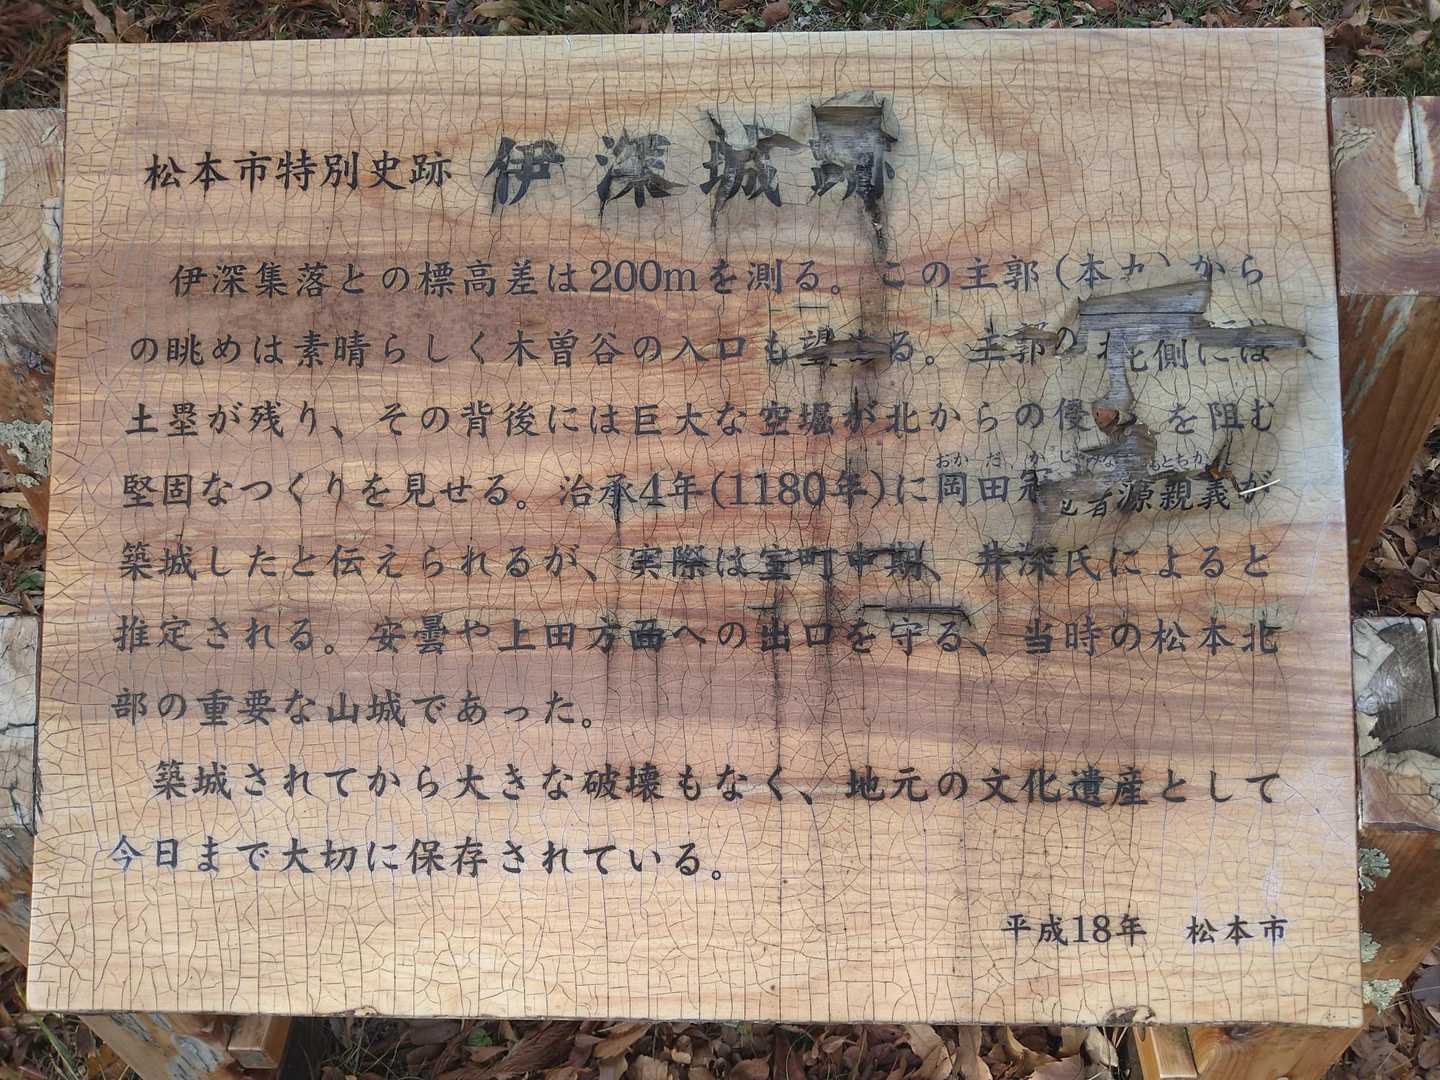 松本市特別史跡 伊深城跡
伊深集落との標高差は200mを測る。この主郭(本丸)から
の眺めは素晴らしく木曽谷の入口も望める。主郭の北側には
土塁が残り、その背後には巨大な空堀が北からの侵 を阻む
おか だ か じゃ みなもとちか
堅固なつくりを見せる。治承4年(1180年)に岡田冠 者源親義が
築城したと伝えられるが、実際は室町中期、井深氏によると
推定される。安曇や上田方面への出口を守る、当時の松本北
部の重要な山城であった。
築城されてから大きな破壊もなく、地元の文化遺産として
今日まで大切に保存されている。
平成18年 松本市